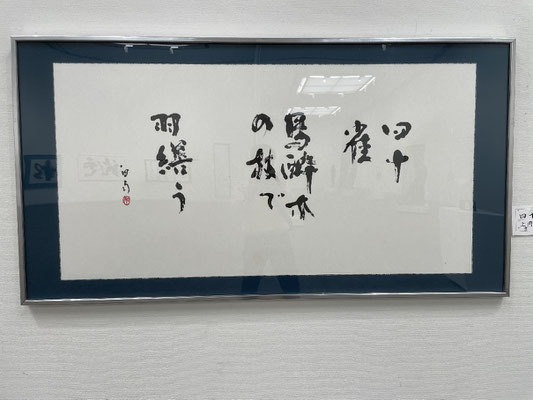 四十
雀
馬酔木
の枝で
羽繕う